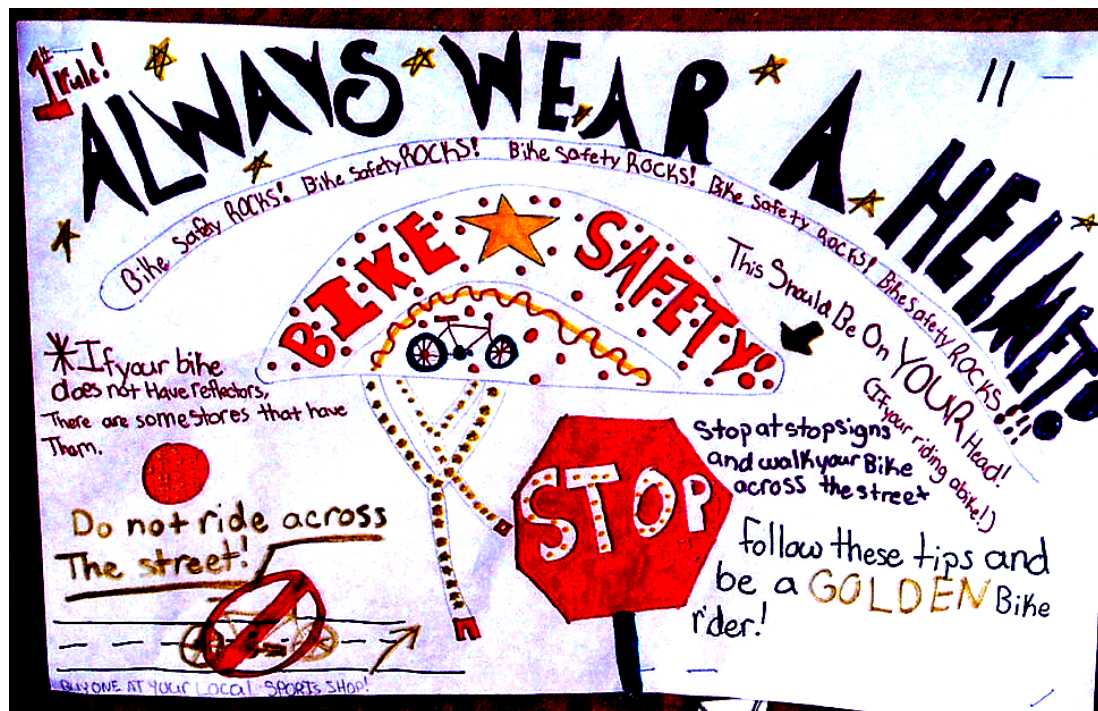 1st rule!
ALWAYS WEAR A HELMET!
Bike Safety ROCKS! Bike Safety ROCKS! Bike Safety ROCKS! Bike Safety ROCKS! Bike Safety ROCKS!!!!
BIKE SAFETY!
This Should Be On YOUR Head!
(If your riding a bike!)
*If your bike
does not Have reflectors,
There are some stores that have
Tham.
Do not ride across
The street!
STOP
Stop at stop signs
and walk your Bike
across the street
Follow these tips and
be a GOLDEN Bike
rider!
BUY ONE AT YOUR LOCAL SPORTS SHOP!